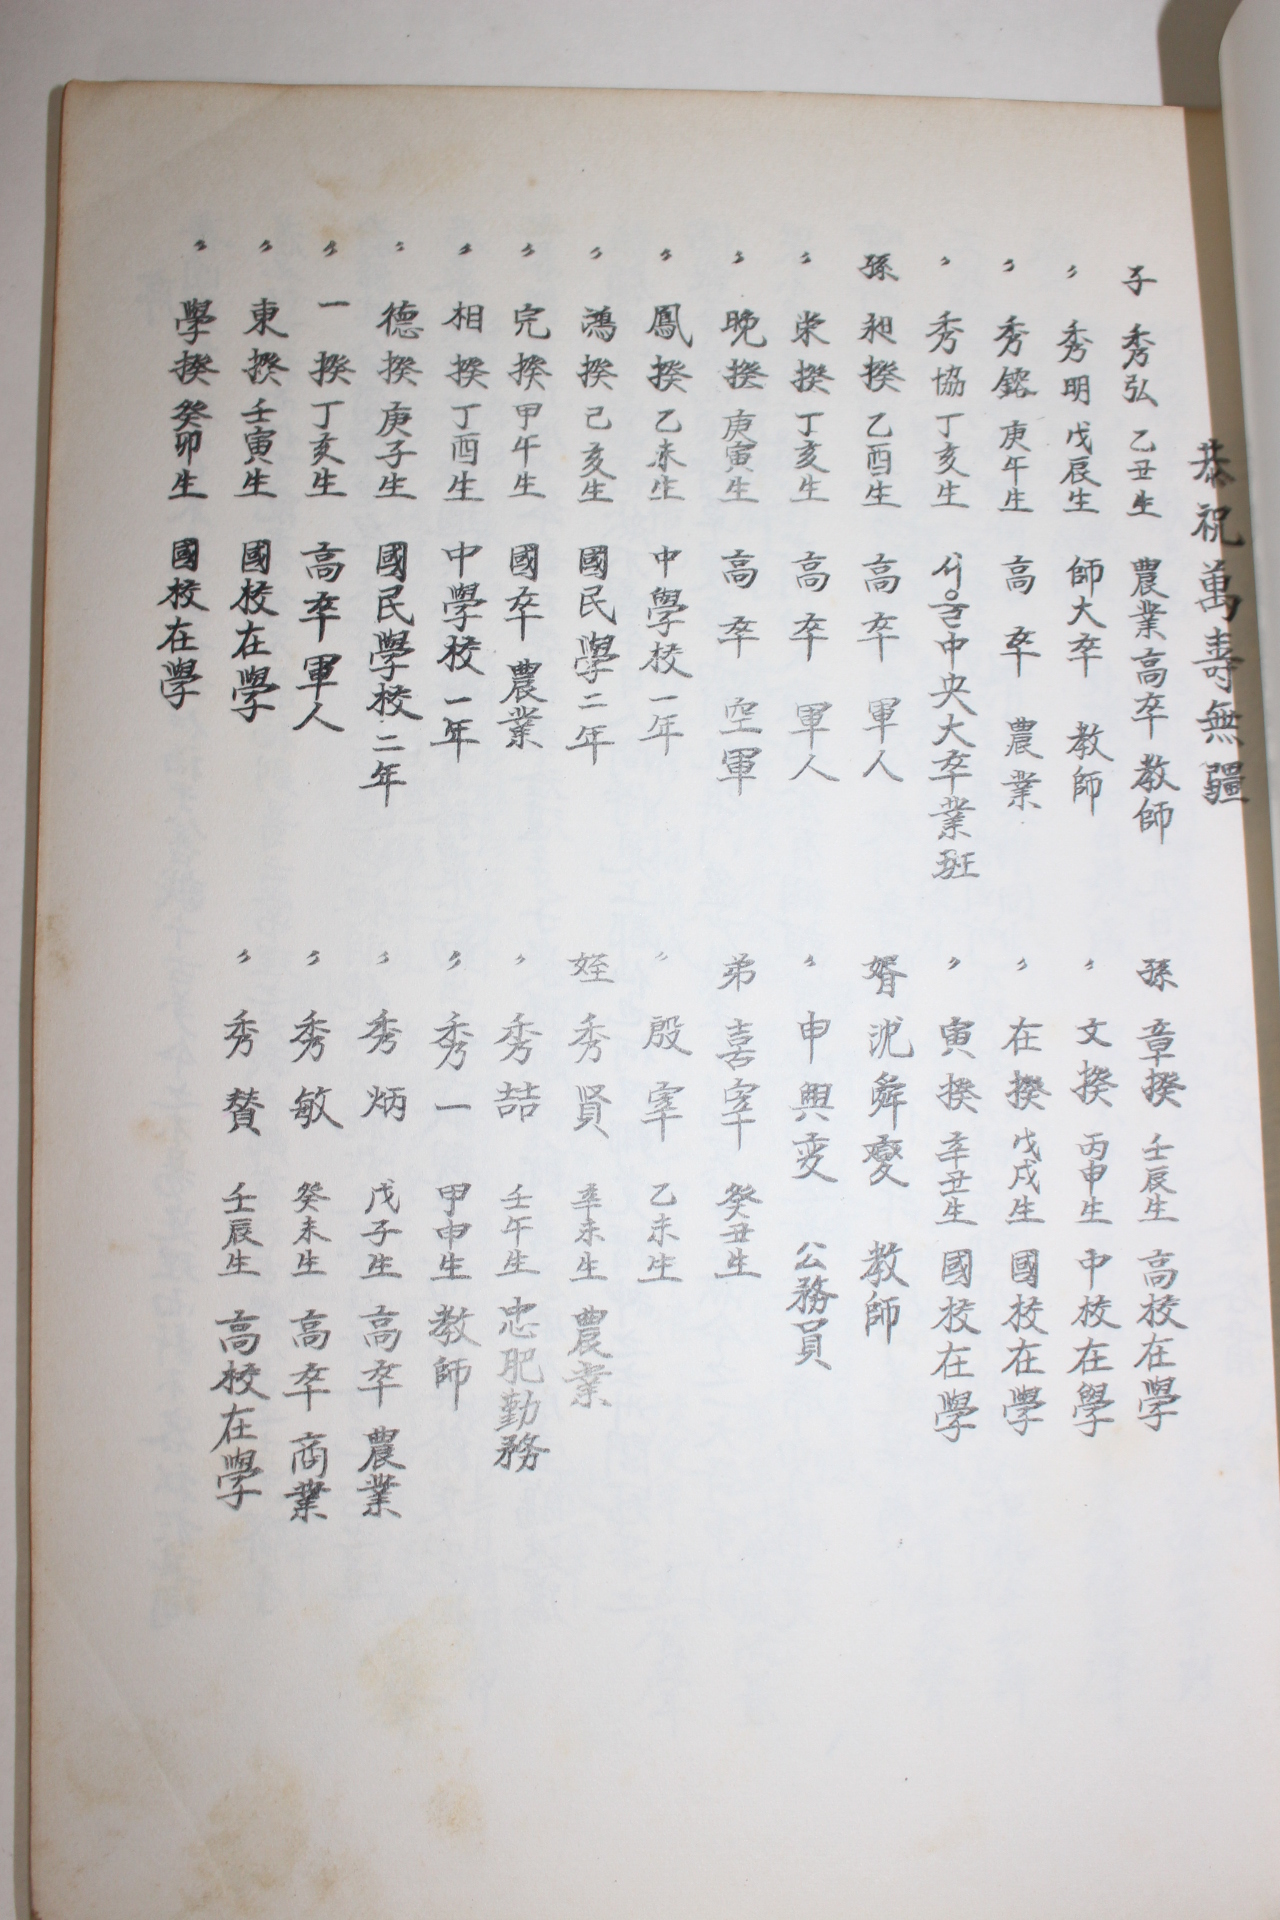 恭祝萬壽無疆
子 秀弘 乙丑生 農業高卒 教師
〃 秀明 戊辰生 師大卒 教師
〃 秀銘 庚午生 高卒 農業
〃 秀協 丁亥生 서울中央大卒業班
孫 昶揆 乙酉生 高卒 軍人
〃 栄揆 丁亥生 高卒 軍人
〃 晩揆 庚寅生 高卒 空軍
〃 鳳揆 乙未生 中學校一年
〃 鴻揆 己亥生 國民學二年
〃 完揆 甲午生 國卒 農業
〃 相揆 丁酉生 中學校一年
〃 德揆 庚子生 國民學校二年
〃 一揆 丁亥生 高卒軍人
〃 東揆 壬寅生 國校在學
〃 學揆 癸卯生 國校在學
孫 章揆 壬辰生 高校在學
〃 文揆 丙申生 中校在學
〃 在揆 戊戌生 國校在學
〃 寅揆 辛丑生 國校在學
婿 沈舜燮 教師
〃 申興变 公務員
弟 喜宰 癸丑生
〃 殷宰 乙未生
姪 秀賢 辛未生 農業
〃 秀喆 壬午生 忠肥勤務
〃 秀一 甲申生 教師
〃 秀炳 戊子生 高卒 農業
〃 秀敏 癸未生 高卒 商業
〃 秀賛 壬辰生 高校在學